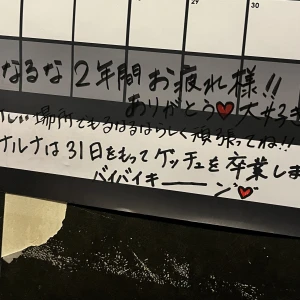 29
30
なるな2年間お疲れ様!!
ありがとう♥大好き
しい場所でもなるはならしく頑張ってね!!
ナルナは31日をもってゲッチュを卒業しま
バイバイキーーン♥